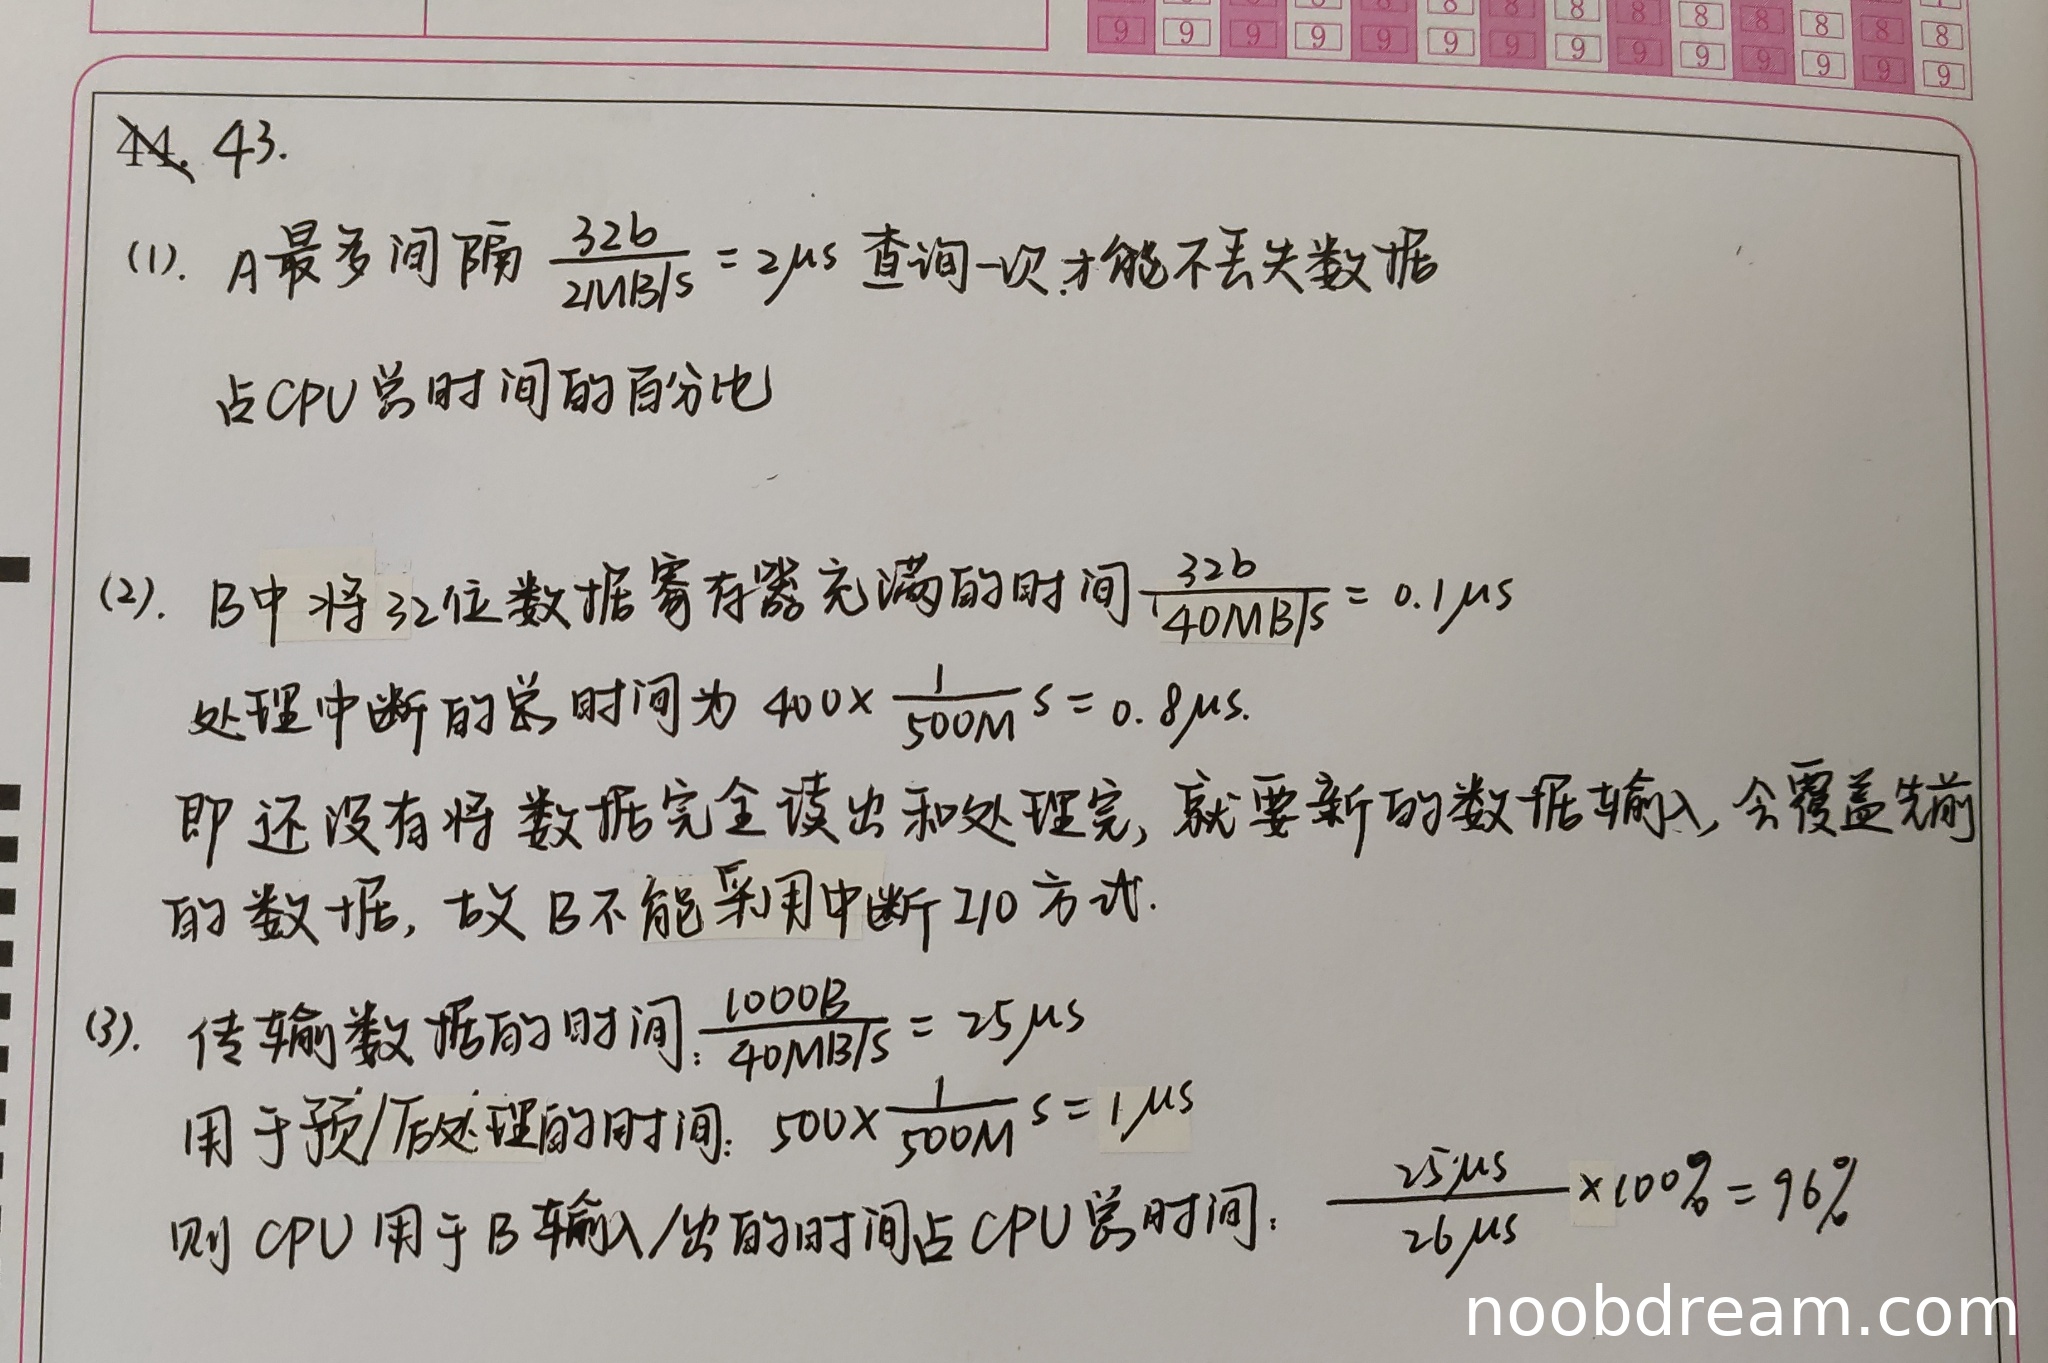 9 9 9 9 9 9 9 9 9 9 9 9 9 9
44. 43.
(1). A最多间隔 32b/2MB/s = 2μs 查询一次才能不丢失数据
占CPU总时间的百分比
(2). B中将32位数据寄存器充满的时间 32b/40MB/s = 0.1μs
处理中断的总时间为 400× 1/500M s = 0.8μs.
即还没有将数据完全读出和处理完, 就要新的数据输入, 会覆盖先前
的数据, 故B不能采用中断I/O方式.
(3). 传输数据的时间: 1000B/40MB/s = 25μs
用于预/后处理的时间: 500× 1/500M s = 1μs
则CPU用于B输入/出的时间占CPU总时间: 25μs/26μs ×100% = 96%
noobdream.com